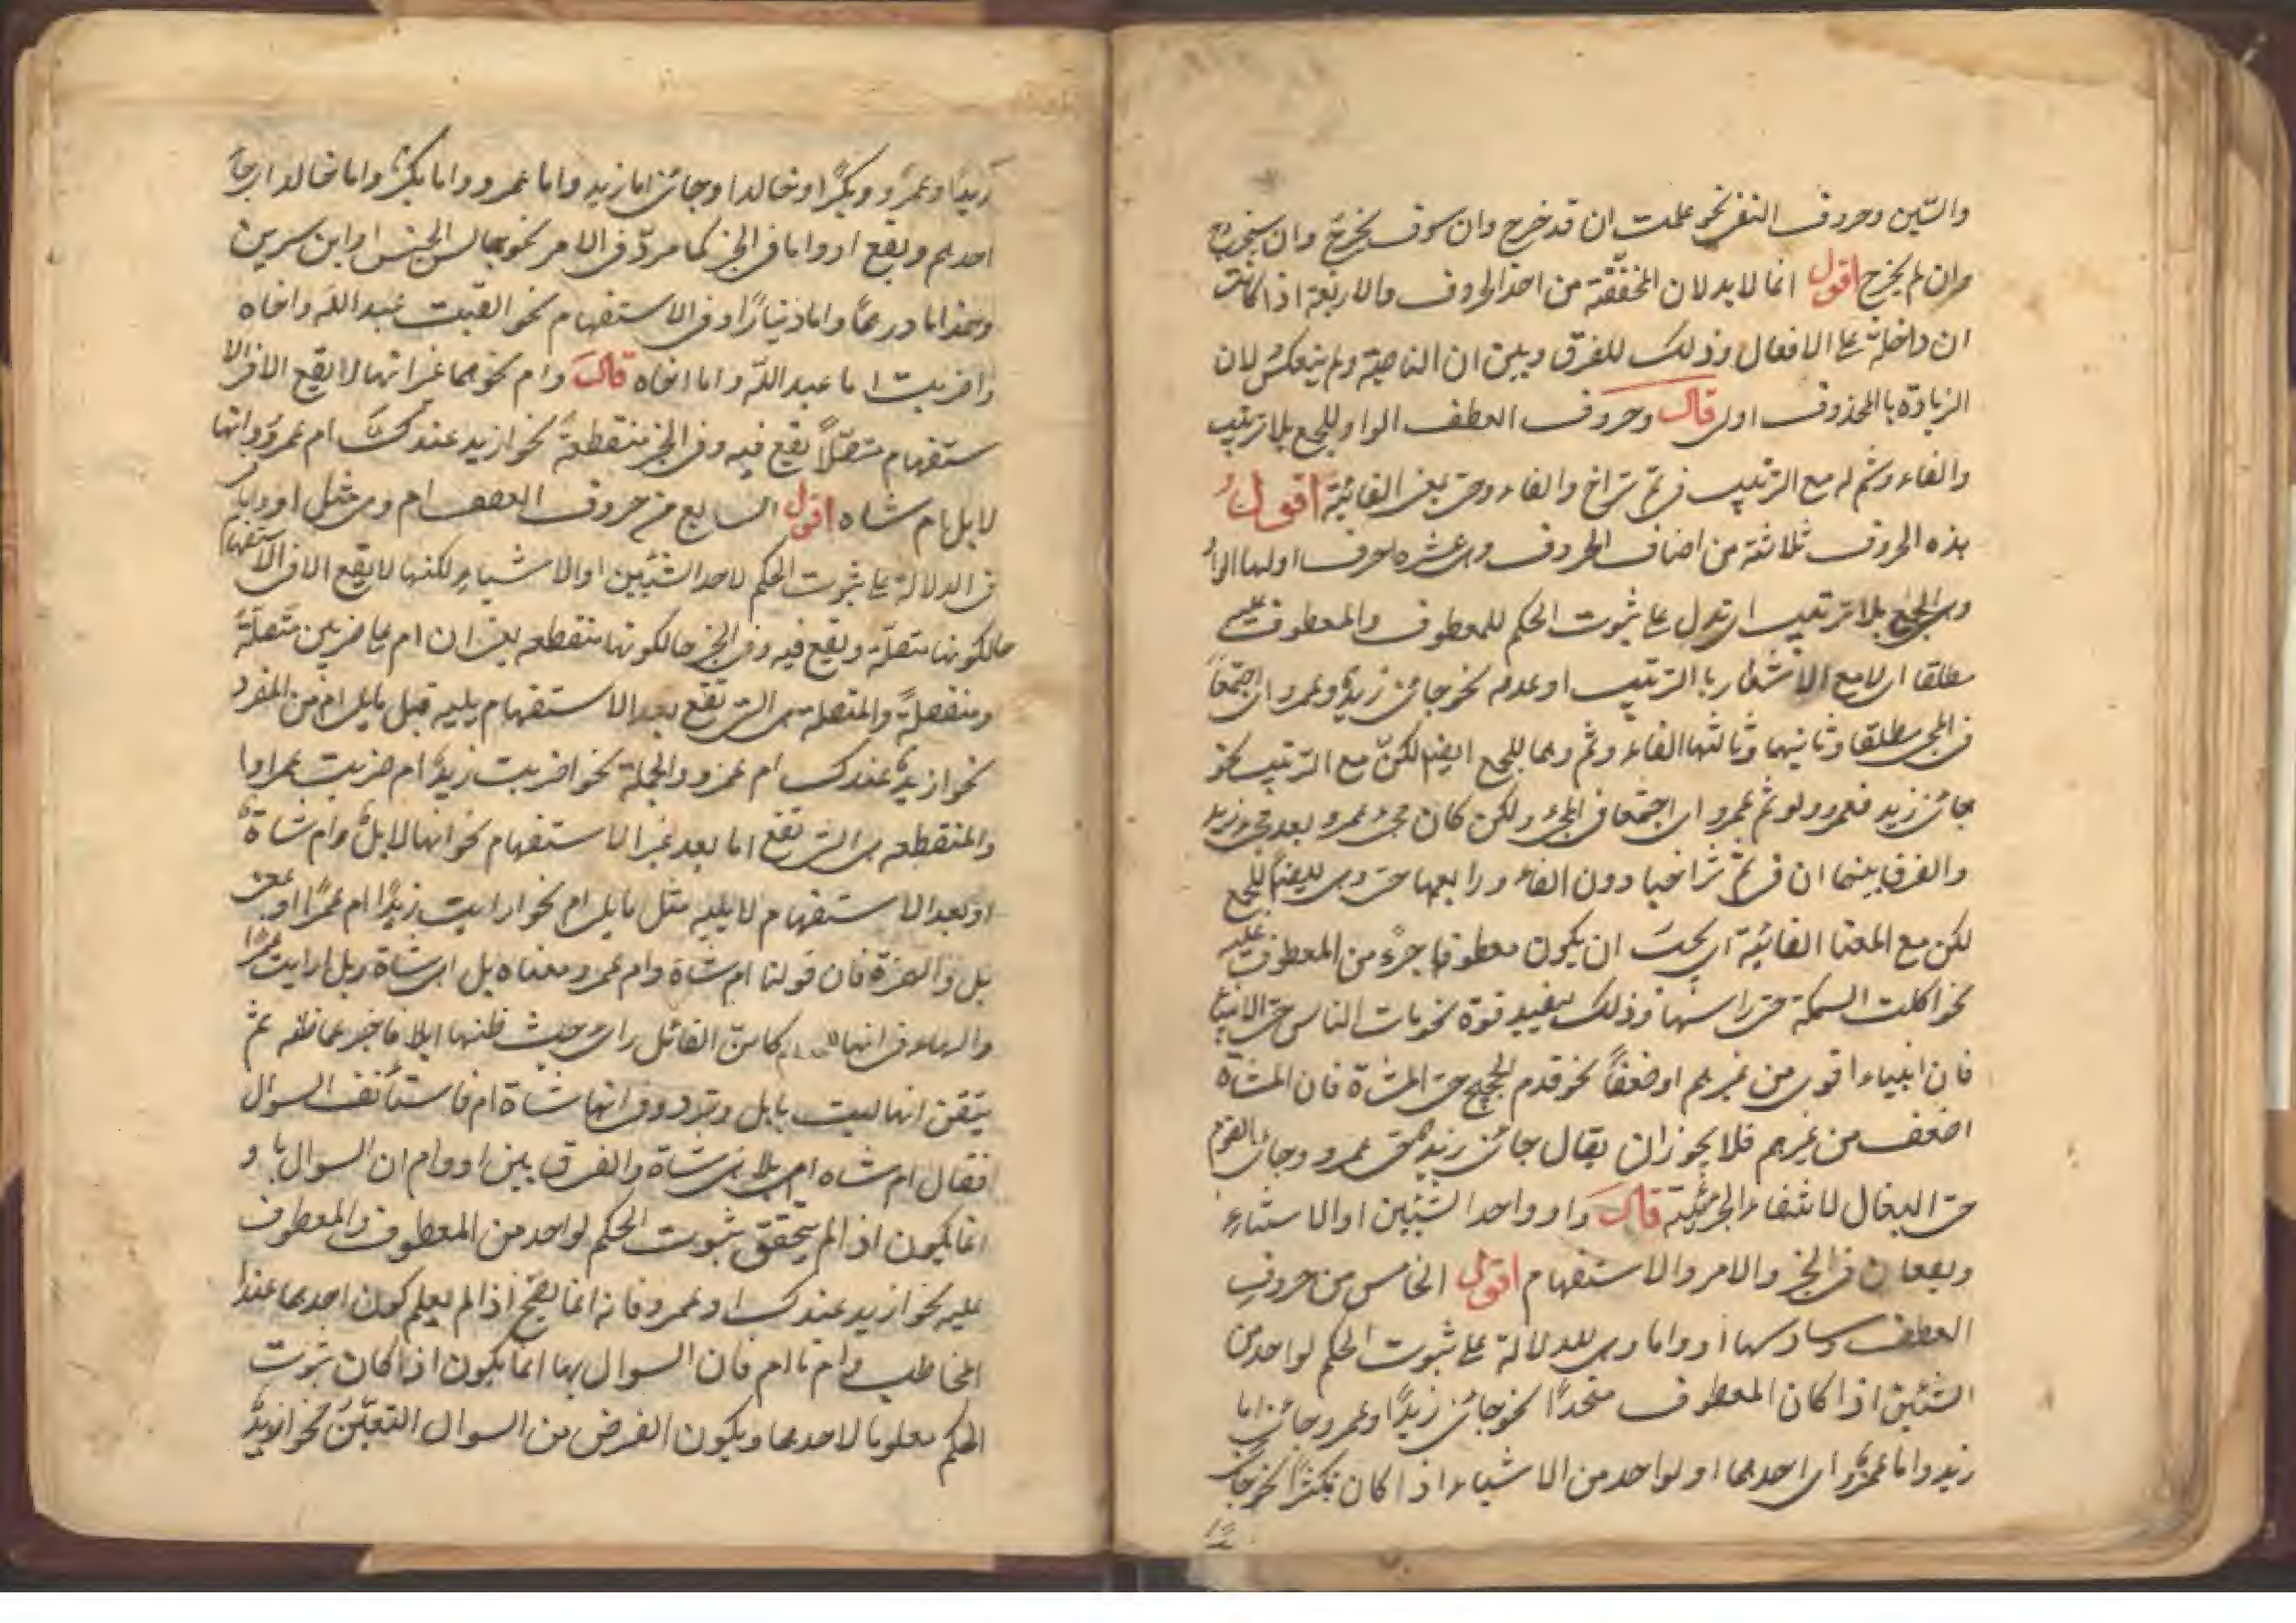 والسّين وحروف النفى نحو علمت ان قد خرج وان سوف يخرج وان سيخرج
وان لم يخرج اقول انما لابد لان المخففة من احد الحروف والاربعة اذا كانت
ان داخلة على الافعال وذلك للفرق وبين ان الناصبة ولم ينعكس لان
الزيادة باالمحذوف اولى قال وحروف العطف الواو للجمع بلا ترتيب
والفاء وثم له مع الترتيب فى ثم تراخ والفاء وحتى بمعنى الغائية اقول
هذه الحروف ثلاثة من اصناف الحروف وهى عشره حرف اولها الواو
وهى للجمع بلا ترتيب اى تدل على ثبوت الحكم للمعطوف والمعطوف عليه
مطلقا اى لا مع الاشعار باالترتيب او عدمه نحو جائنى زيد وعمرو اى اجتمعا
فى المجى مطلقا وثانيهما وثالثها الفاء وثم وهما للجمع ايضا لكن مع الترتيب نحو
جائنى زيد فعمرو ولو ثم عمرو اى اجتمعا فى المجئ ولكن كان مجئ عمرو بعد مجئ زيد
والفرق بينهما ان فى ثم تراخيا دون الفاء ورابعها حتى وهى ايضا للجمع
لكن مع المعنا الغائية اى يجب ان يكون معطوفها جزء من المعطوف عليه
نحو اكلت السمكة حتى راسها وذلك ليفيد قوة نحو مات الناس حتى الانبياء
فان انبياء اقوى من غيرهم او ضعفا نحو قدم الحجج حتى المشاة فان المشاة
اضعف من غيرهم فلا يجوز ان يقال جائنى زيد حتى عمرو وجائنى القوم
حتى البغال لانتفاء الجزئية قال واو واحد الشيئين او الاشياء
ويقعان فى الخبر والامر والاستفهام اقول الخامس من حروف
العطف وسادسها او واما وهى للدلالة على ثبوت الحكم لواحد من
الشيئين اذا كان المعطوف متحدا نحو جائنى زيدا وعمرو جائنى اما
زيد واما عمرو اى احدهما او لواحد من الاشياء اذا كان تكثرا نحو جائنى
زيدا وعمرو وبكرا وخالدا وجائنى اما زيد واما عمرو واما بكر واما خالدا اى جاء
احدهم ويقع او واما فى الخبر كما مر وفى الامر نحو جالس الحسن او ابن سرين
وخذ اما درهما واما دنيارا وفى الاستفهام نحو القيت عبد الله واخاه
واضربت اما عبد الله واما اخاه قال وام نحوهما غير انها لا يقع الا فى الا
ستفهام متصلا يقع فيه وفى الخبر منقطعة نحو ازيد عندك ام عمرو وانها
لابل ام شاه اقول السابع من حروف العطف ام وهى مثل او واما
فى الدلالة على ثبوت الحكم لاحد الشيئين او الاشياء لكنها لا يقع الا فى الاستفهام
حالكونها متصلة ويقع فيه وفى الخبر حالكونها منقطعه يعنى ان ام على ضربين متصلة
ومنفصلة والمتصلة هى التى تقع بعد الاستفهام يليه قبل ما يلى ام من المفرد
نحو ازيد عندك ام عمرو والجملة نحو اضربت زيدا ام ضربت عمرا وا
والمنقطعه هى التى تقع اما بعد غير الاستفهام نحو انها لابل وام شاة
او بعد الاستفهام لا يليه مثل ما يلى ام نحو ارايت زيدا ام عمرا وبمعنى
بل والهمزة فان قولنا ام شاة وام عمرو معناه بل اهى شاة وبل ارايت عمرا
والهاء فى انها كان القائل راى جيث ظنها ابلا فاخبر عما ظنه ثم
يتقن انها ليست بابل وتردد فى انها شاة ام فاستأنف السوال
فقال ام شاه اى بلا هى شاة والفرق بين او وام ان السوال باو
انما يكون اذ الم يتحقق ثبوت الحكم لواحد من المعطوف والمعطوف
عليه نحو ازيد عندك او عمرو فانه انما يصح اذ الم يعلم كون احدهما عند
المخاطب وام تا ام فان السوال بها انما يكون اذا كان ثبوت
الحكم معلوما لاحدهما ويكون الغرض من السوال التعيّن نحو ازيد